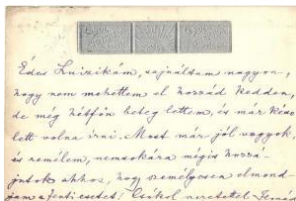 Édes Luizikám, sajnáltam nagyon,
hogy nem mehettem el hozzád kedden,
de még hétfőn beteg lettem, és már késő
lett volna írni. Most már jól vagyok,
és remélem, nemsokára mégis hozzá-
jutok ahhoz, hogy személyesen elmond-
jam a fenti esetet! Csókol szeretettel